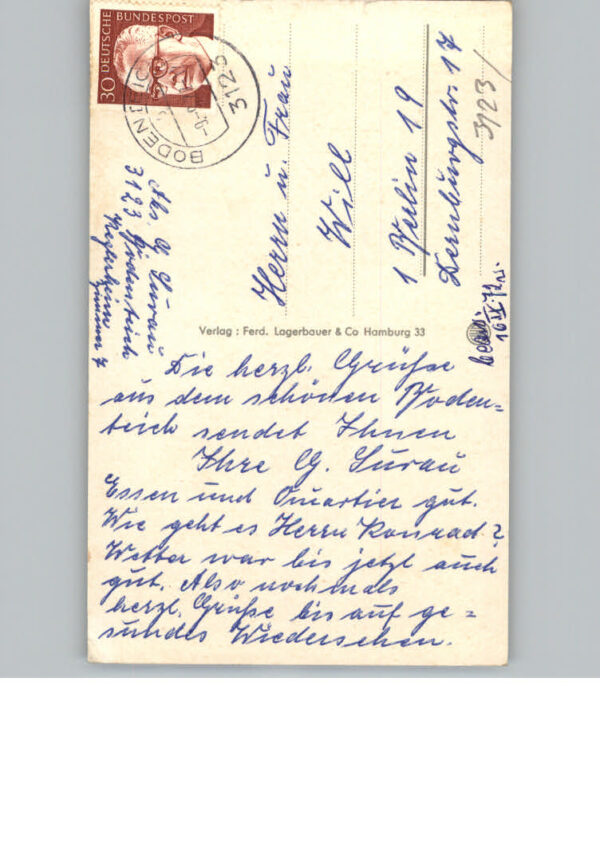 30 DEUTSCHE BUNDESPOST
3123
BODENTEICH
Herrn u. Frau
Will
1 Berlin 19
Dernburgstr. 17
3123/
Abs. G. Surau
3123 Bodenteich
Zimmer 7
16. IX 72
Verlag : Ferd. Lagerbauer & Co Hamburg 33
Die herzl. Grüße
aus dem schönen Boden=
teich sendet Ihnen
Ihre G. Surau
Essen und Quartier gut.
Wie geht es Herrn Konrad?
Wetter war bis jetzt auch
gut. Also nochmals
herzl. Grüße bis auf ge=
sundes Wiedersehen.